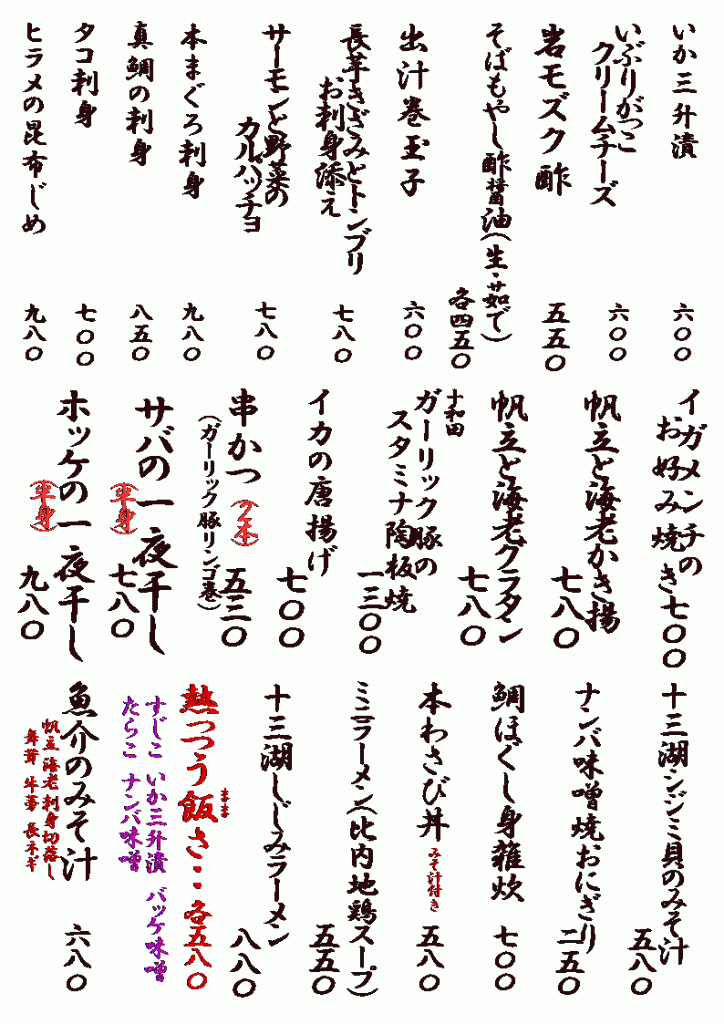 いか三升漬
六〇〇
いぶりがっこ
クリームチーズ
六〇〇
岩モズク酢
五五〇
そばもやし酢醤油(生・茹で)
各四五〇
出汁巻玉子
六〇〇
長芋きざみとトンブリ
お刺身添え
七八〇
サーモンと野菜の
カルパッチョ
七八〇
本まぐろ刺身
九八〇
真鯛の刺身
八五〇
タコ刺身
七〇〇
ヒラメの昆布じめ
九八〇
イガメンチの
お好み焼き
七〇〇
帆立と海老かき揚
七八〇
帆立と海老グラタン
七八〇
十和田
ガーリック豚の
スタミナ陶板焼
一三〇〇
イカの唐揚げ
七〇〇
串かつ(2本)
(ガーリック豚リンゴ巻)
五三〇
サバの一夜干し
(半身)
七八〇
ホッケの一夜干し
(半身)
九八〇
十三湖シジミ貝のみそ汁
五八〇
ナンバ味噌焼おにぎり
二五〇
鯛ほぐし身雑炊
七〇〇
本わさび丼
みそ汁付き
五八〇
ミニラーメン(比内地鶏スープ)
五五〇
十三湖しじみラーメン
八八〇
熱っつう飯さ・・各五八〇
まま
すじこ いか三升漬 バッケ味噌
たらこ ナンバ味噌
魚介のみそ汁
帆立 海老 刺身切落し
舞茸 牛蒡 長ネギ
六八〇